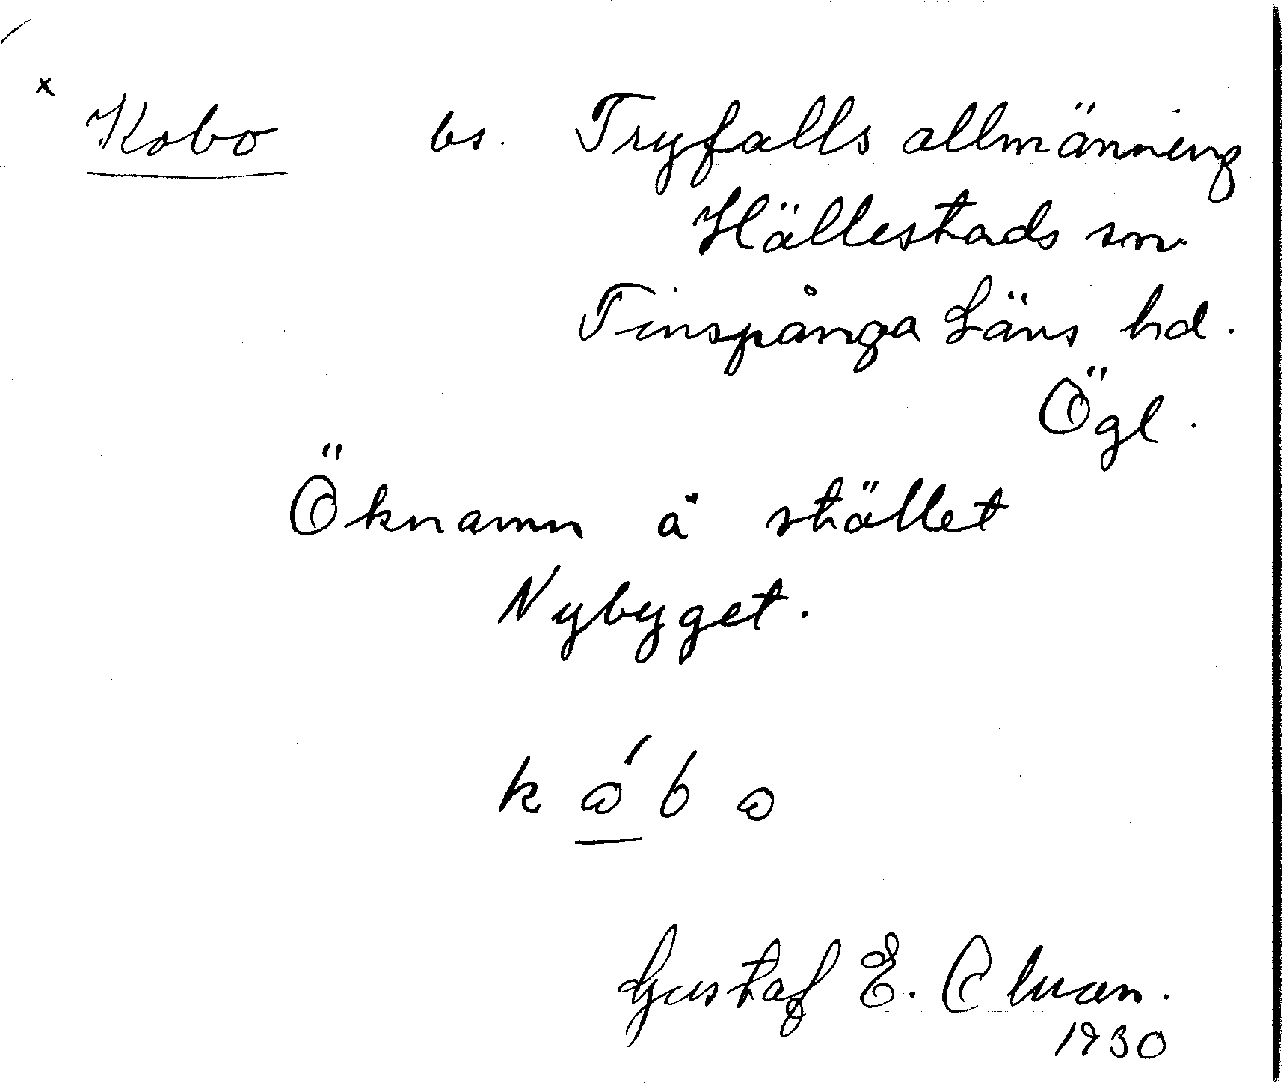 x
Kobo bs. Tryfalls allmänning
Hällestads sn
Finspånga Läns hd.
Ögl.
Öknamn å stället
Nybyget.
k ó b o
Gustaf E.
1930